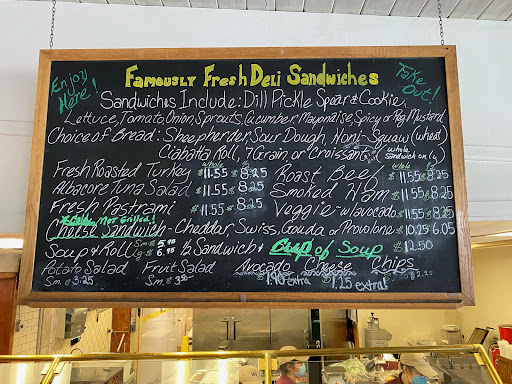 Enjoy Here!
Famously Fresh Deli Sandwiches
Take Out!
Sandwiches Include: Dill Pickle Spear & Cookie,
Lettuce, Tomato, Onion, Sprouts, Cucumber, Mayonaise, Spicy or Reg Mustard
Choice of Bread: Sheepherder, Sour Dough, Noni-Squaw (wheat)
Ciabatta Roll, 7 Grain or Croissant (whole sandwich only)
whole 1/2
Fresh Roasted Turkey $11.55 $8.25
Albacore Tuna Salad $11.55 $8.25
Fresh Pastrami $11.55 $8.25
whole 1/2
Roast Beef $11.55 $8.25
Smoked Ham $11.55 $8.25
Veggie - w/avocado $11.55 $8.25
Cold, Not Grilled!
Cheese Sandwich - Cheddar, Swiss, Gouda or Provolone $10.25 6.05
Soup & Roll Sm. $ Lg. $ 1/2 Sandwich & Cup of Soup $12.50
Potato Salad Fruit Salad Avocado Cheese Chips
Sm. $3.25 Sm. $ extra $1.25 extra! $2.25